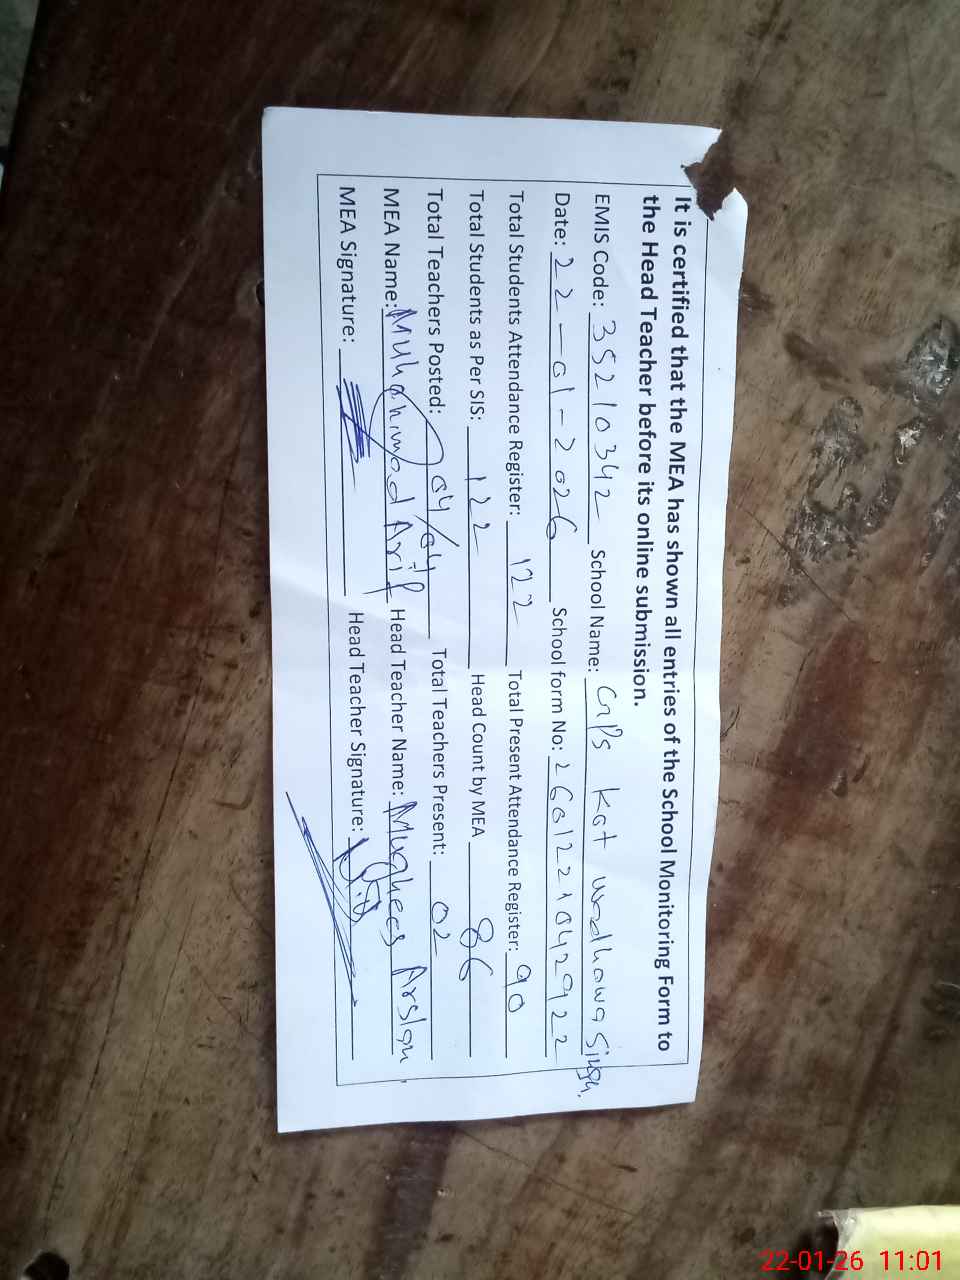 It is certified that the MEA has shown all entries of the School Monitoring Form to
the Head Teacher before its online submission.
EMIS Code: 35210342 School Name: GPS Kot wadhawa Singh.
Date: 22-01-2026 School form No: 26012210429922
Total Students Attendance Register: 122 Total Present Attendance Register: 90
Total Students as Per SIS: 122 Head Count by MEA 86
Total Teachers Posted: 04/04 Total Teachers Present: 02
MEA Name: Muhammad Arif Head Teacher Name: Mughees Arslan
MEA Signature: Head Teacher Signature:
22-01-26 11:01